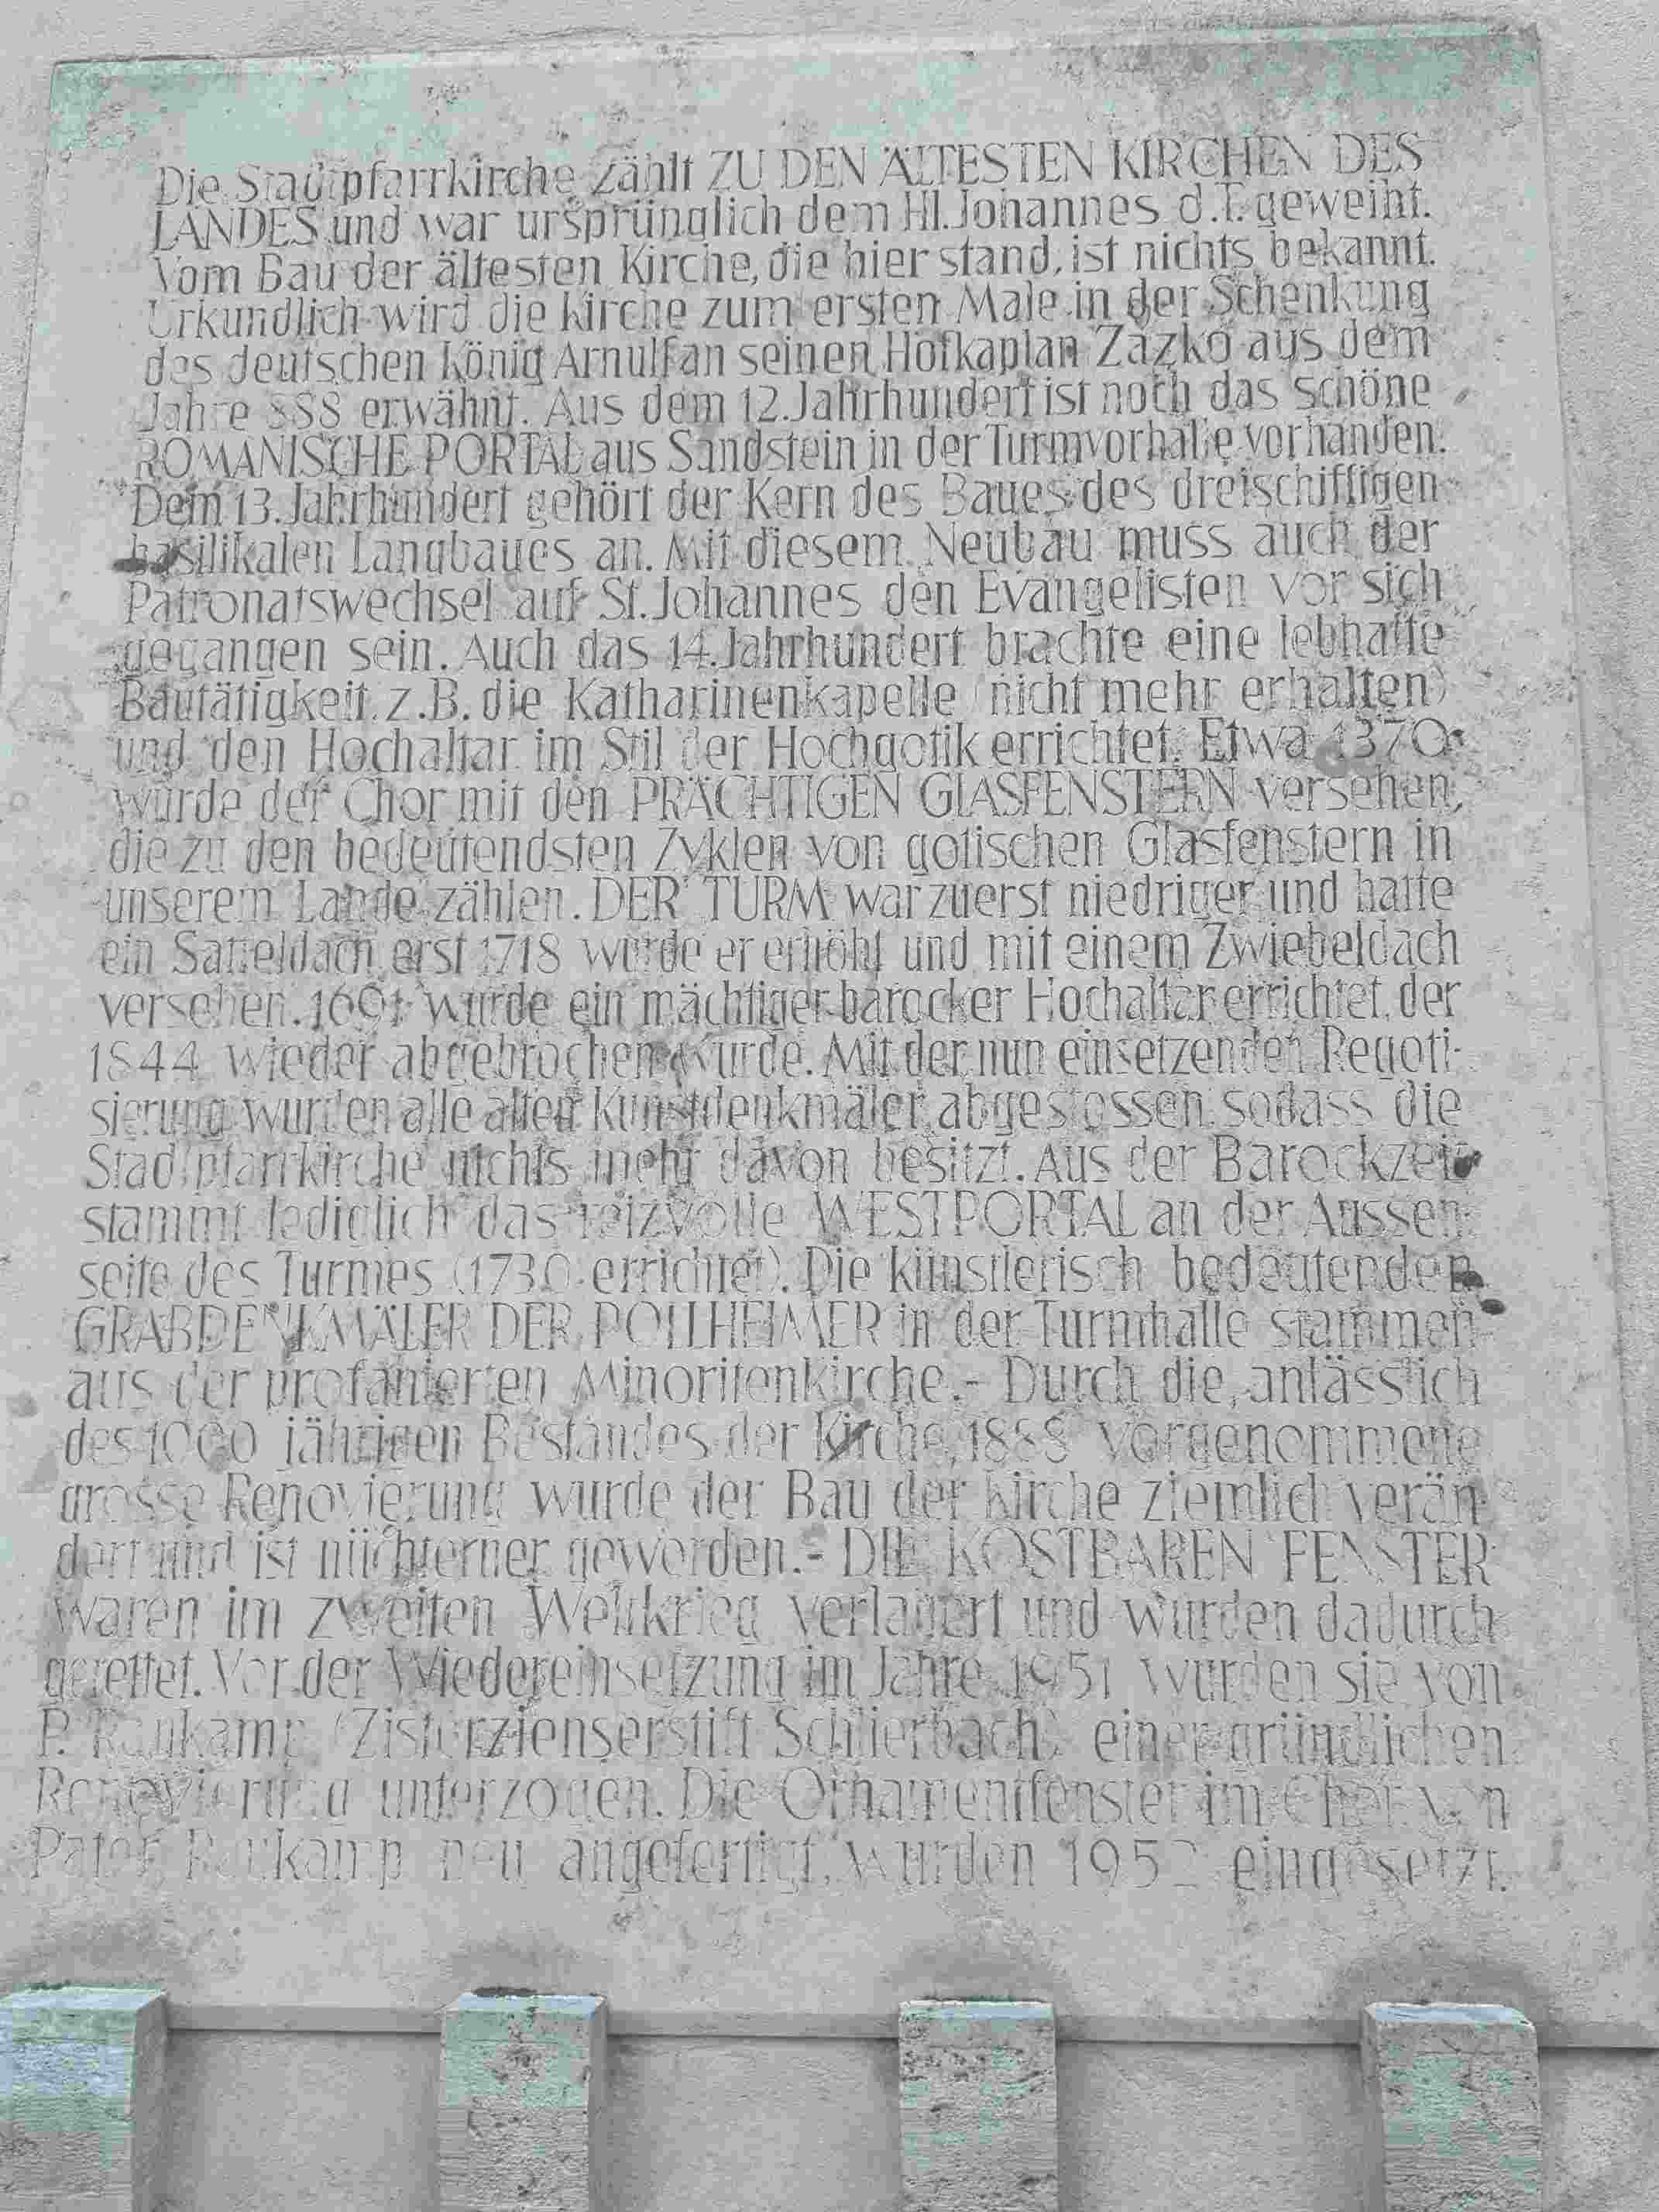 Die Stadtpfarrkirche zählt ZU DEN ÄLTESTEN KIRCHEN DES
LANDES und war ursprünglich dem Hl. Johannes d.T. geweiht.
Vom Bau der ältesten Kirche, die hier stand, ist nichts bekannt.
Urkundlich wird die Kirche zum ersten Male in der Schenkung
des deutschen König Arnulf an seinen Hofkaplan Zazko aus dem
Jahre 888 erwähnt. Aus dem 12. Jahrhundert ist noch das schöne
ROMANISCHE PORTAL aus Sandstein in der Turmvorhalle vorhanden.
Dem 13. Jahrhundert gehört der Kern des Baues des dreischiffigen
basilikalen Langbaues an. Mit diesem Neubau muss auch der
Patronatswechsel auf St. Johannes den Evangelisten vor sich
gegangen sein. Auch das 14. Jahrhundert brachte eine lebhafte
Bautätigkeit, z.B. die Katharinenkapelle (nicht mehr erhalten)
und den Hochaltar im Stil der Hochgotik errichtet. Etwa 1370
wurde der Chor mit den PRÄCHTIGEN GLASFENSTERN versehen,
die zu den bedeutendsten Zyklen von gotischen Glasfenstern in
unserem Lande zählen. DER TURM war zuerst niedriger und hatte
ein Satteldach, erst 1718 wurde er erhöht und mit einem Zwiebeldach
versehen. 1691 wurde ein mächtiger barocker Hochaltar errichtet, der
1844 wieder abgebrochen wurde. Mit der nun einsetzenden Regoti-
sierung wurden alle alten Kunstdenkmäler abgestossen, sodass die
Stadtpfarrkirche nichts mehr davon besitzt. Aus der Barockzeit
stammt lediglich das reizvolle WESTPORTAL an der Aussen-
seite des Turmes (1730 errichtet). Die künstlerisch bedeutenden
GRABDENKMÄLER DER POLLHEIMER in der Turmhalle stammen
aus der profanierten Minoritenkirche.- Durch die, anlässlich
des 1000 jährigen Bestandes der Kirche, 1888 vorgenommene
grosse Renovierung wurde der Bau der Kirche ziemlich verän-
dert und ist nüchterner geworden.- DIE KOSTBAREN FENSTER
waren im zweiten Weltkrieg verlagert und wurden dadurch
gerettet. Vor der Wiedereinsetzung im Jahre 1951 wurden sie von
P. Raukamp (Zisterzienserstift Schlierbach) einer gründlichen
Renovierung unterzogen. Die Ornamentfenster im Chor von
Pater Raukamp neu angefertigt, wurden 1952 eingesetzt.